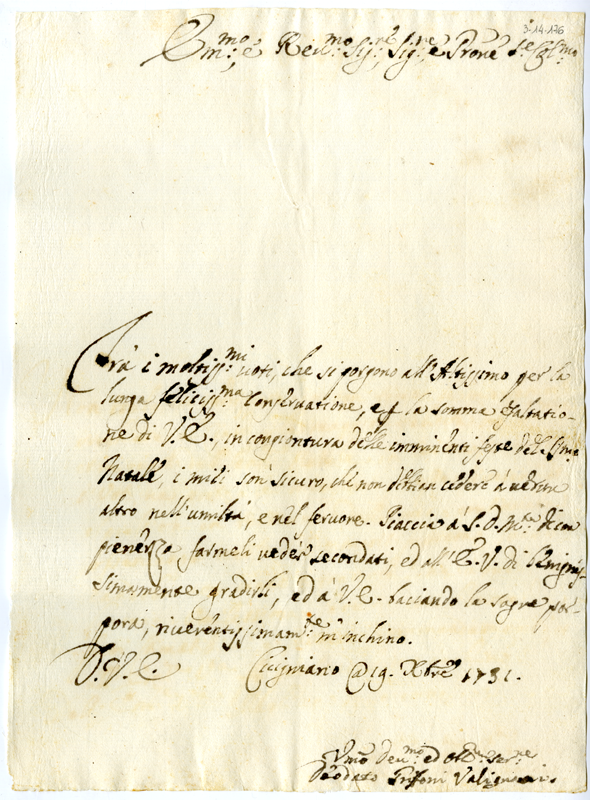 3-14-176
Em:mo, e Reu:mo Sig:re, Sig:re e Prone Col:mo
Trà i moltiss:mi uoti, che si porgono all'Altissimo per la
lunga feliciss:ma Conseruatione, e p la somma esaltatio-
ne di V. E., in congiontura delle imminenti feste del
Natale, i miei son sicuro, che non debban cedere à uerun
altro nell'umiltà, e nel feruore. Piaccia à S. D. M.tà di com
piacenza farmeli veder secondati, ed all'E. V. di benignis-
simamente gradirli, ed à V. E. baciando la sagra por-
pora, riuerentissimam:te m'inchino.
D. V. E. @ 19. Xbre 1731.
Vmo Deu:mo ed Obl:
Deodato Valignani.